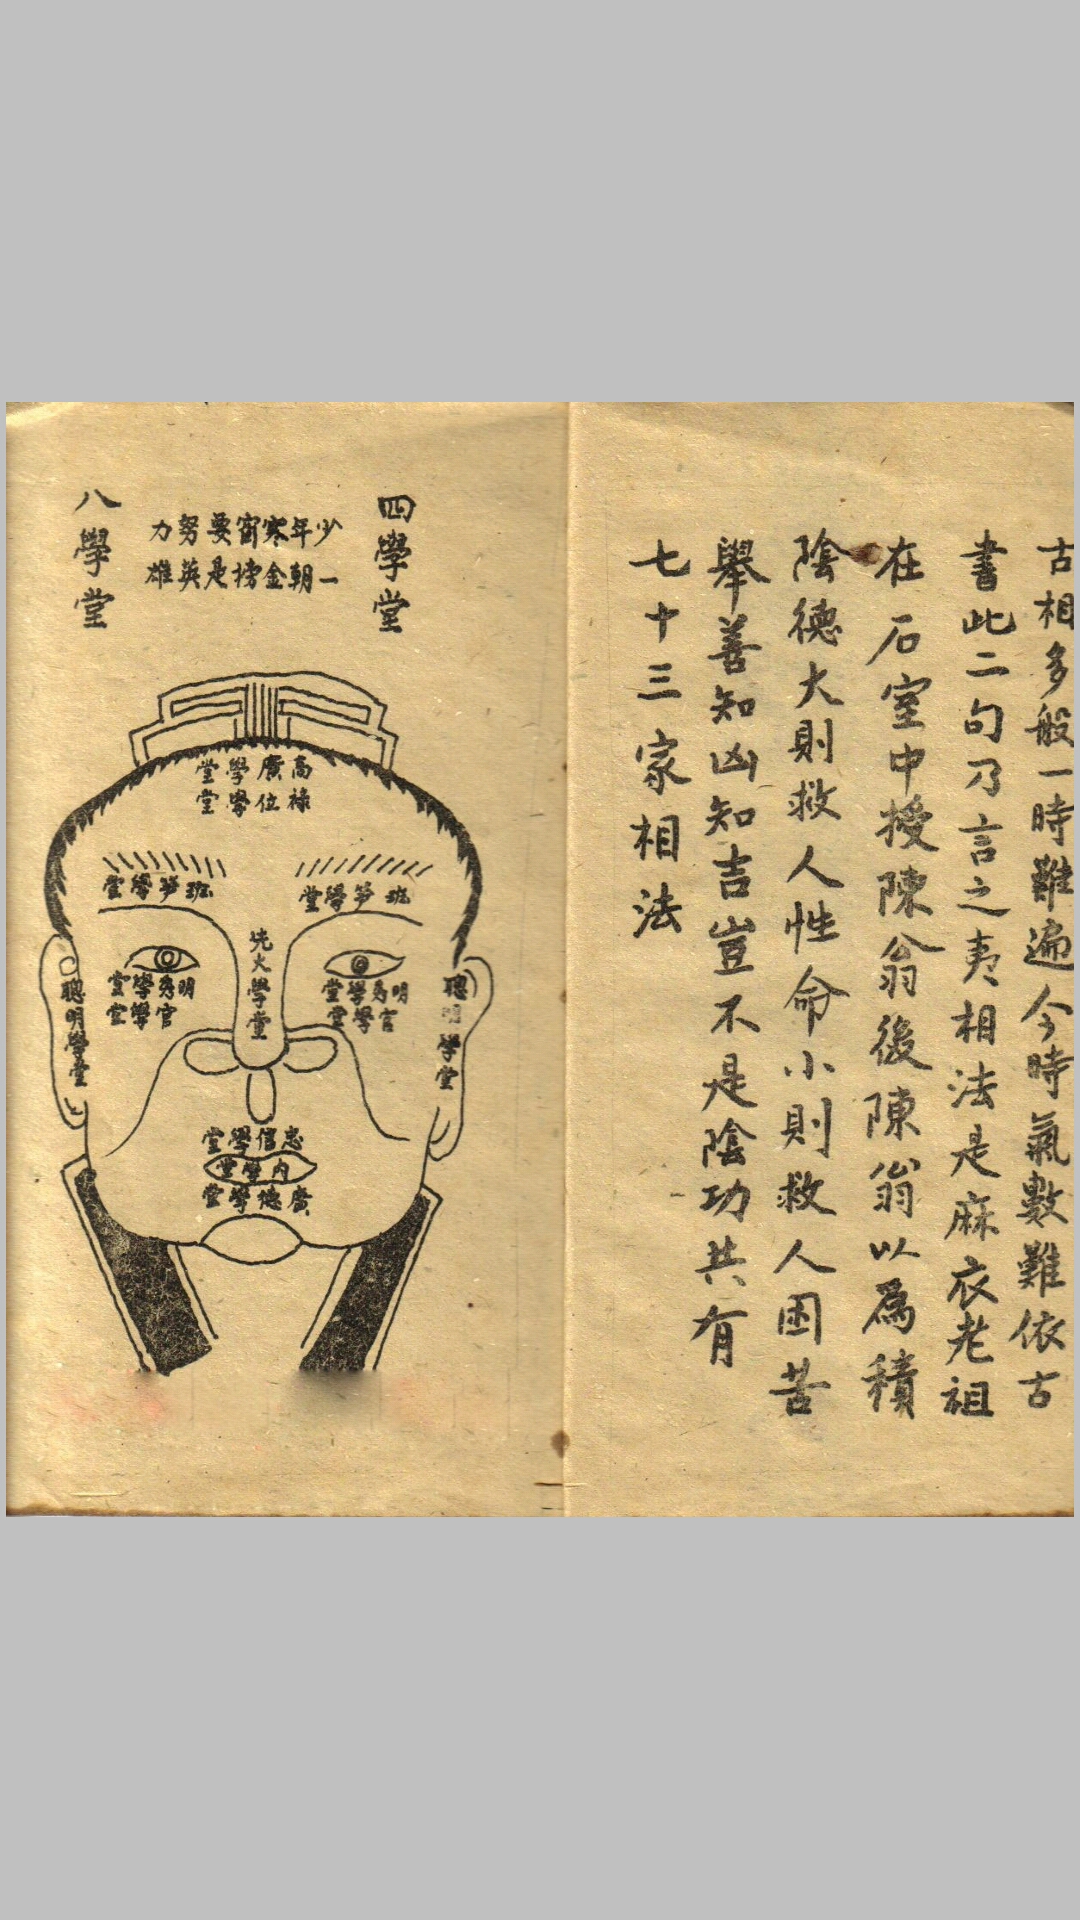 古相多般一時難遍今時氣數難依古
書此二句乃言之夷相法是麻衣老祖
在石室中授陳翁後陳翁以為積
陰德大則救人性命小則救人困苦
舉善知凶知吉豈不是陰功共有
七十三家相法
四學堂
少年寒窗要努力
一朝金榜是英雄
八學堂
高廣學堂
祿位學堂
班笋學堂
班笋學堂
明秀學堂
官學堂
明秀學堂
官學堂
聰明學堂
聰明學堂
忠信學堂
內學堂
廣德學堂